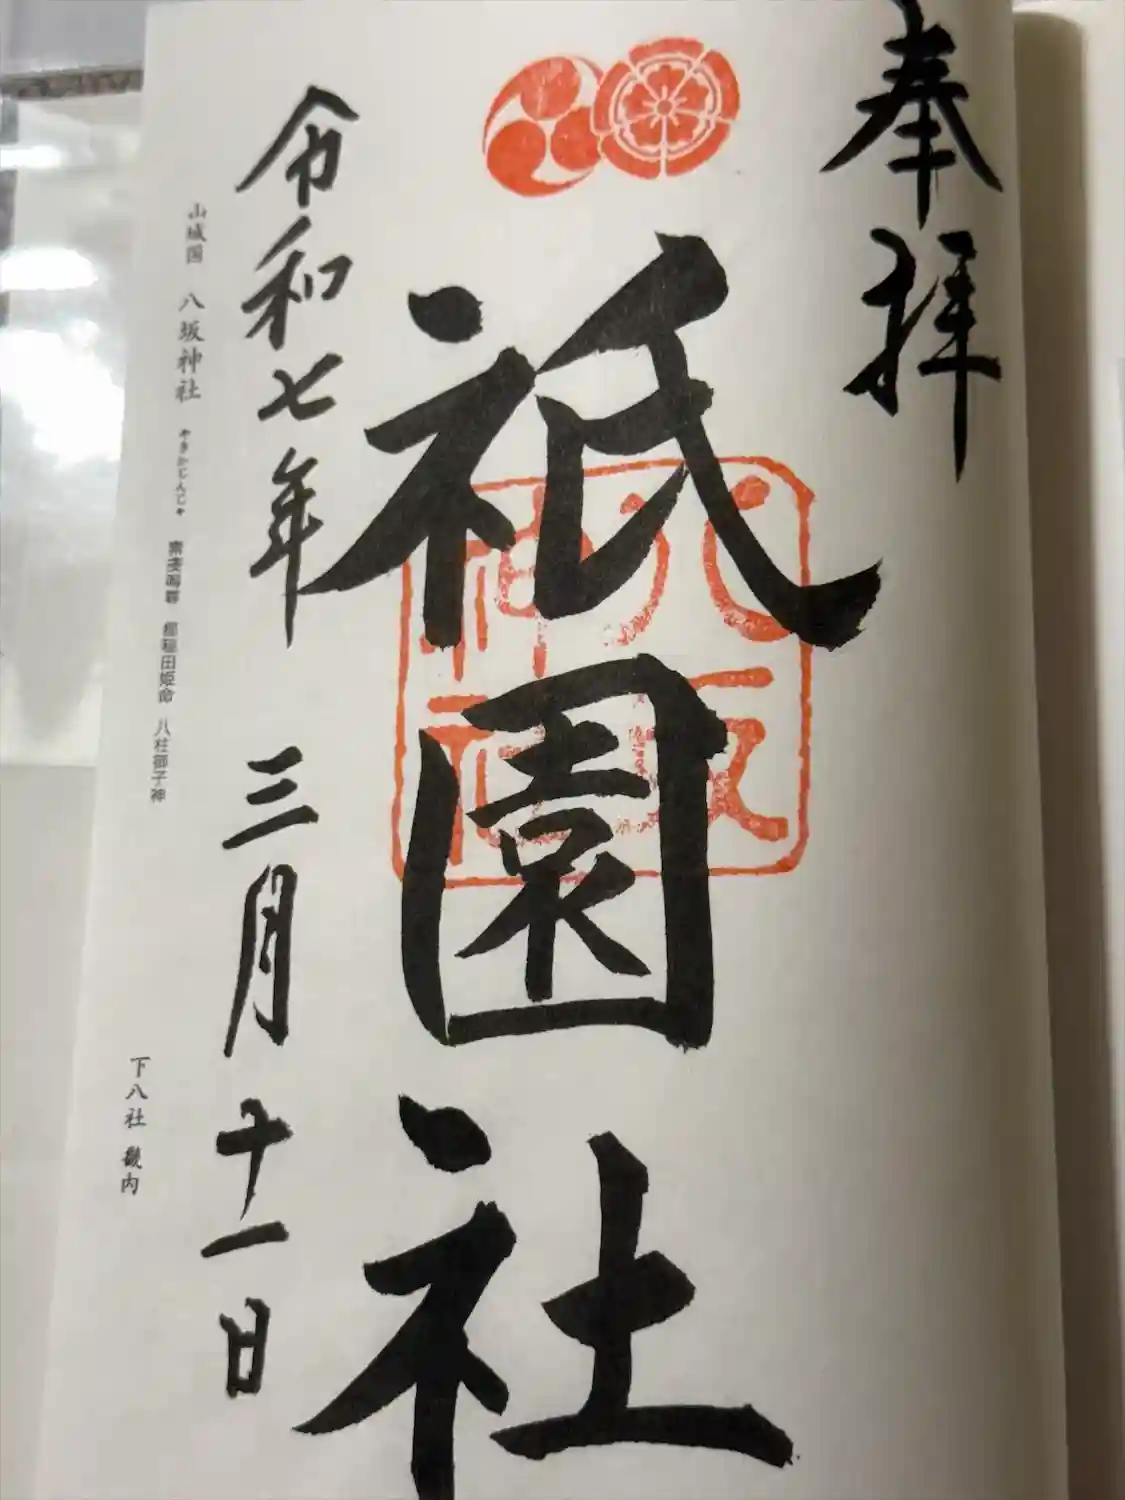 奉拝
祇園社
八坂神社
令和七年 三月十一日
山城国 八坂神社 やさかじんじゃ 素戔嗚尊 櫛稲田姫命 八柱御子神
下八社 畿内